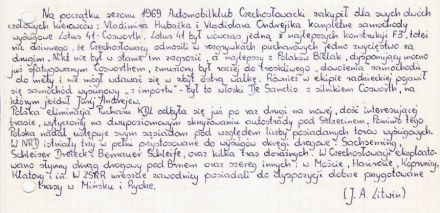 Na początku sezonu 1969 Automobilklub Czechosłowacki zakupił dla swych dwóch
czołowych kierowców: Vladimira Hubáčka i Vladislava Ondřejíka kompletne samochody
wyścigowe Lotus 41 - Cosworth. Lotus 41 był wówczas jedną z najlepszych konstrukcji F3, toteż
nic dziwnego, że Czechosłowacy odnosili w rozgrywkach pucharowych jedno zwycięstwo za
drugim. Nikt nie był w stanie im zagrozić, a najlepszy z Polaków Bielak, dysponujący mocno
już sfatygowanym Cosworthem, zmuszony był raczej do prowadzenia "dowożenia samochodu
do mety" i nie mógł wdawać się w zbyt ostrą walkę. Również w ekipie radzieckiej pojawił
się samochód wyścigowy "z importu" - był to włoski De Sanctis z silnikiem Cosworth, na
którym jeździł Jurij Andrejew.
Polska eliminacja Pucharu KDL odbyła się już po raz drugi na nowej, dość interesującej
trasie, wytyczonej na dwupoziomowym skrzyżowaniu autostrady pod Szczecinem. Pomimo tego
Polska nadal ustępuje swym sąsiadom pod względem liczby posiadanych torów wyścigowych.
W NRD istniały trzy w pełni przystosowane do wyścigów okręgi drogowe: Sachsenring,
Schleizer Dreieck i Bernauer Schleife, oraz kilka tras doraźnych. W Czechosłowacji eksploato-
wano słynny okrąg drogowy pod Brnem oraz szereg innych: w Moście, Hawirzowie,
Klatovy i in. W ZSRR wreszcie zawodnicy posiadali do dyspozycji dobrze przygotowane
trasy w Mińsku i Rydze.
(J. A. Litwin)